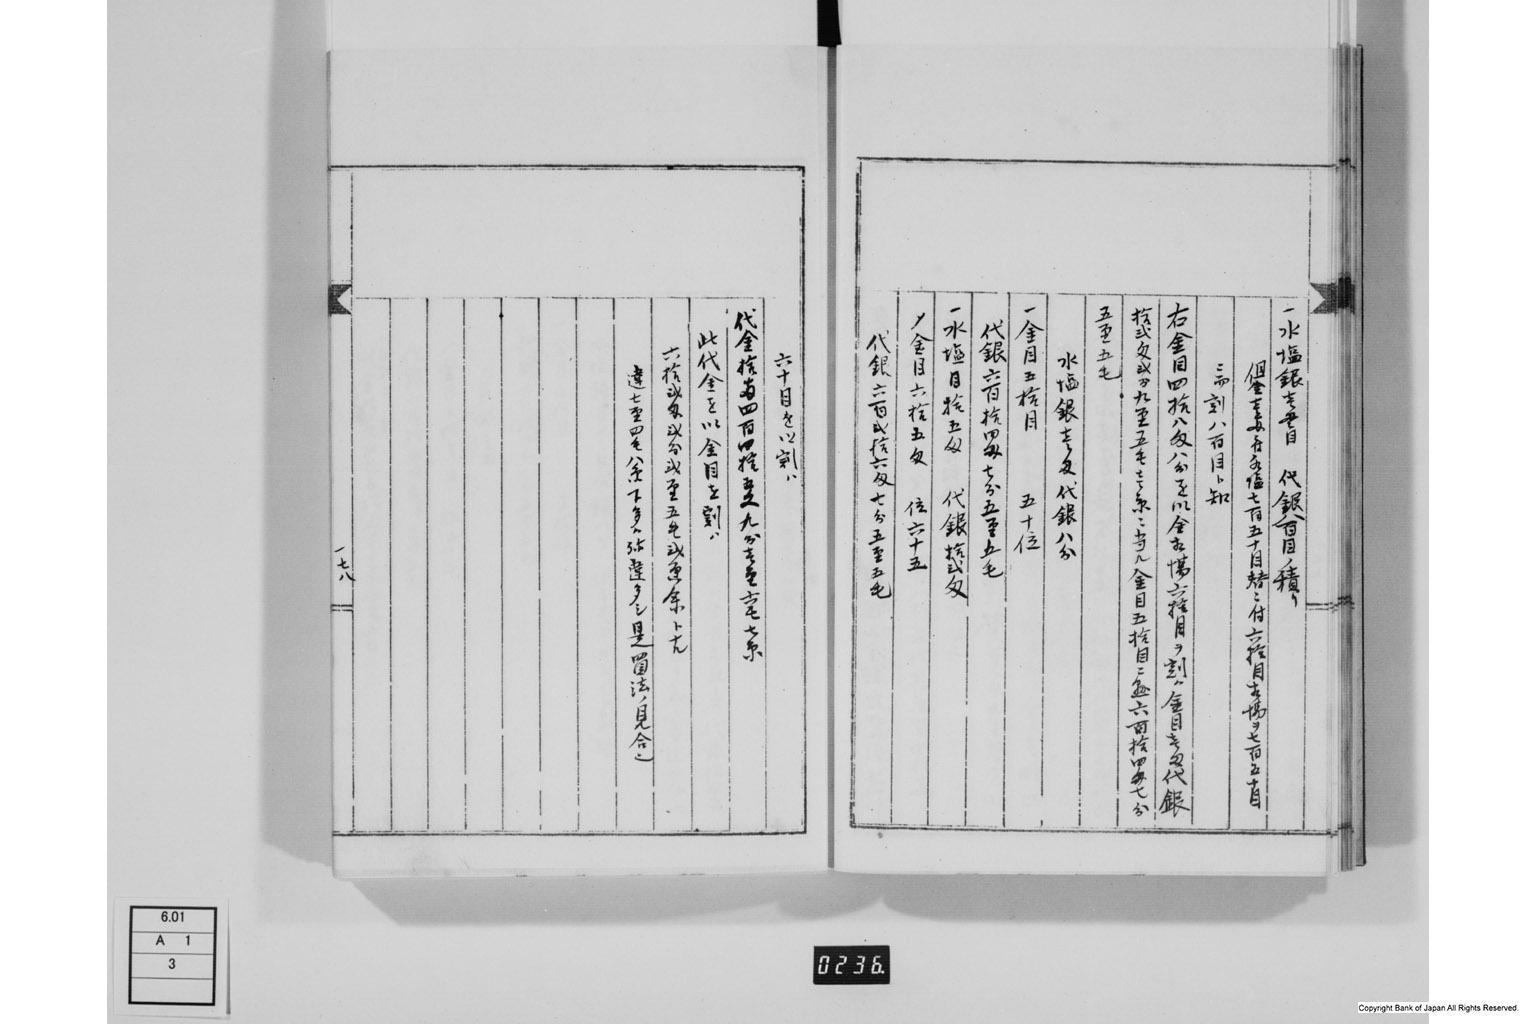 一水塩銀壱貫目　代銀八百目ノ積り
但金壱両ニ付水塩七百五十目替ニ付六拾目相場ヲ七百五十目
ニ而割八百目ト知
右金目四拾八匁八分を以金相場六拾目ヲ割ハ金目壱匁代銀
拾弐匁弐分九厘五毛七糸ニ当ル金目五拾目ニ懸六百拾四匁七分
五厘五毛
水塩銀壱匁代銀八分
一金目五拾目　五十位
代銀六百拾四匁七分五厘五毛
一水塩目拾五匁　代銀拾弐匁
〆金目六拾五匁　位六十五
代銀六百弐拾六匁七分五厘五毛
六十目を以割ハ
代金拾両四百四拾五文九分壱厘六毛七糸
此代金を以金目を割ハ
六拾弐匁弐分弐厘五毛弐糸余ト ナル
違七厘四毛八糸下多ハ弥違多シ是置法ノ見合也
一七八
6.01
A 1
3
0236.
Copyright Bank of Japan All Rights Reserved.